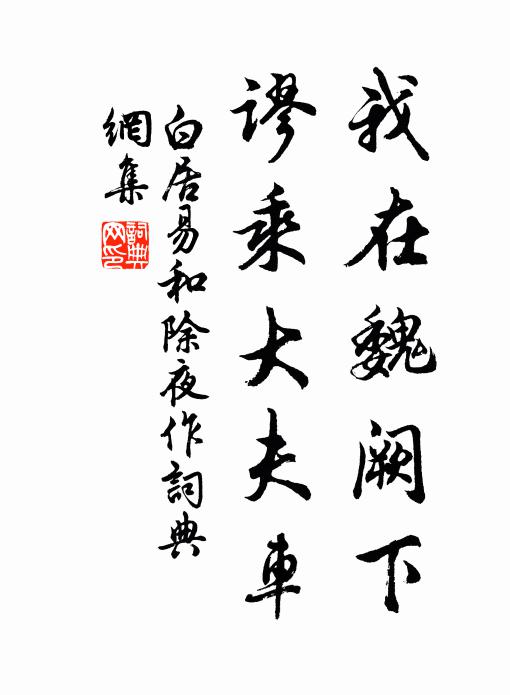 我在魏阙下
謬乘大夫車
白居易和除夜作詞典
網集
詞典
网印